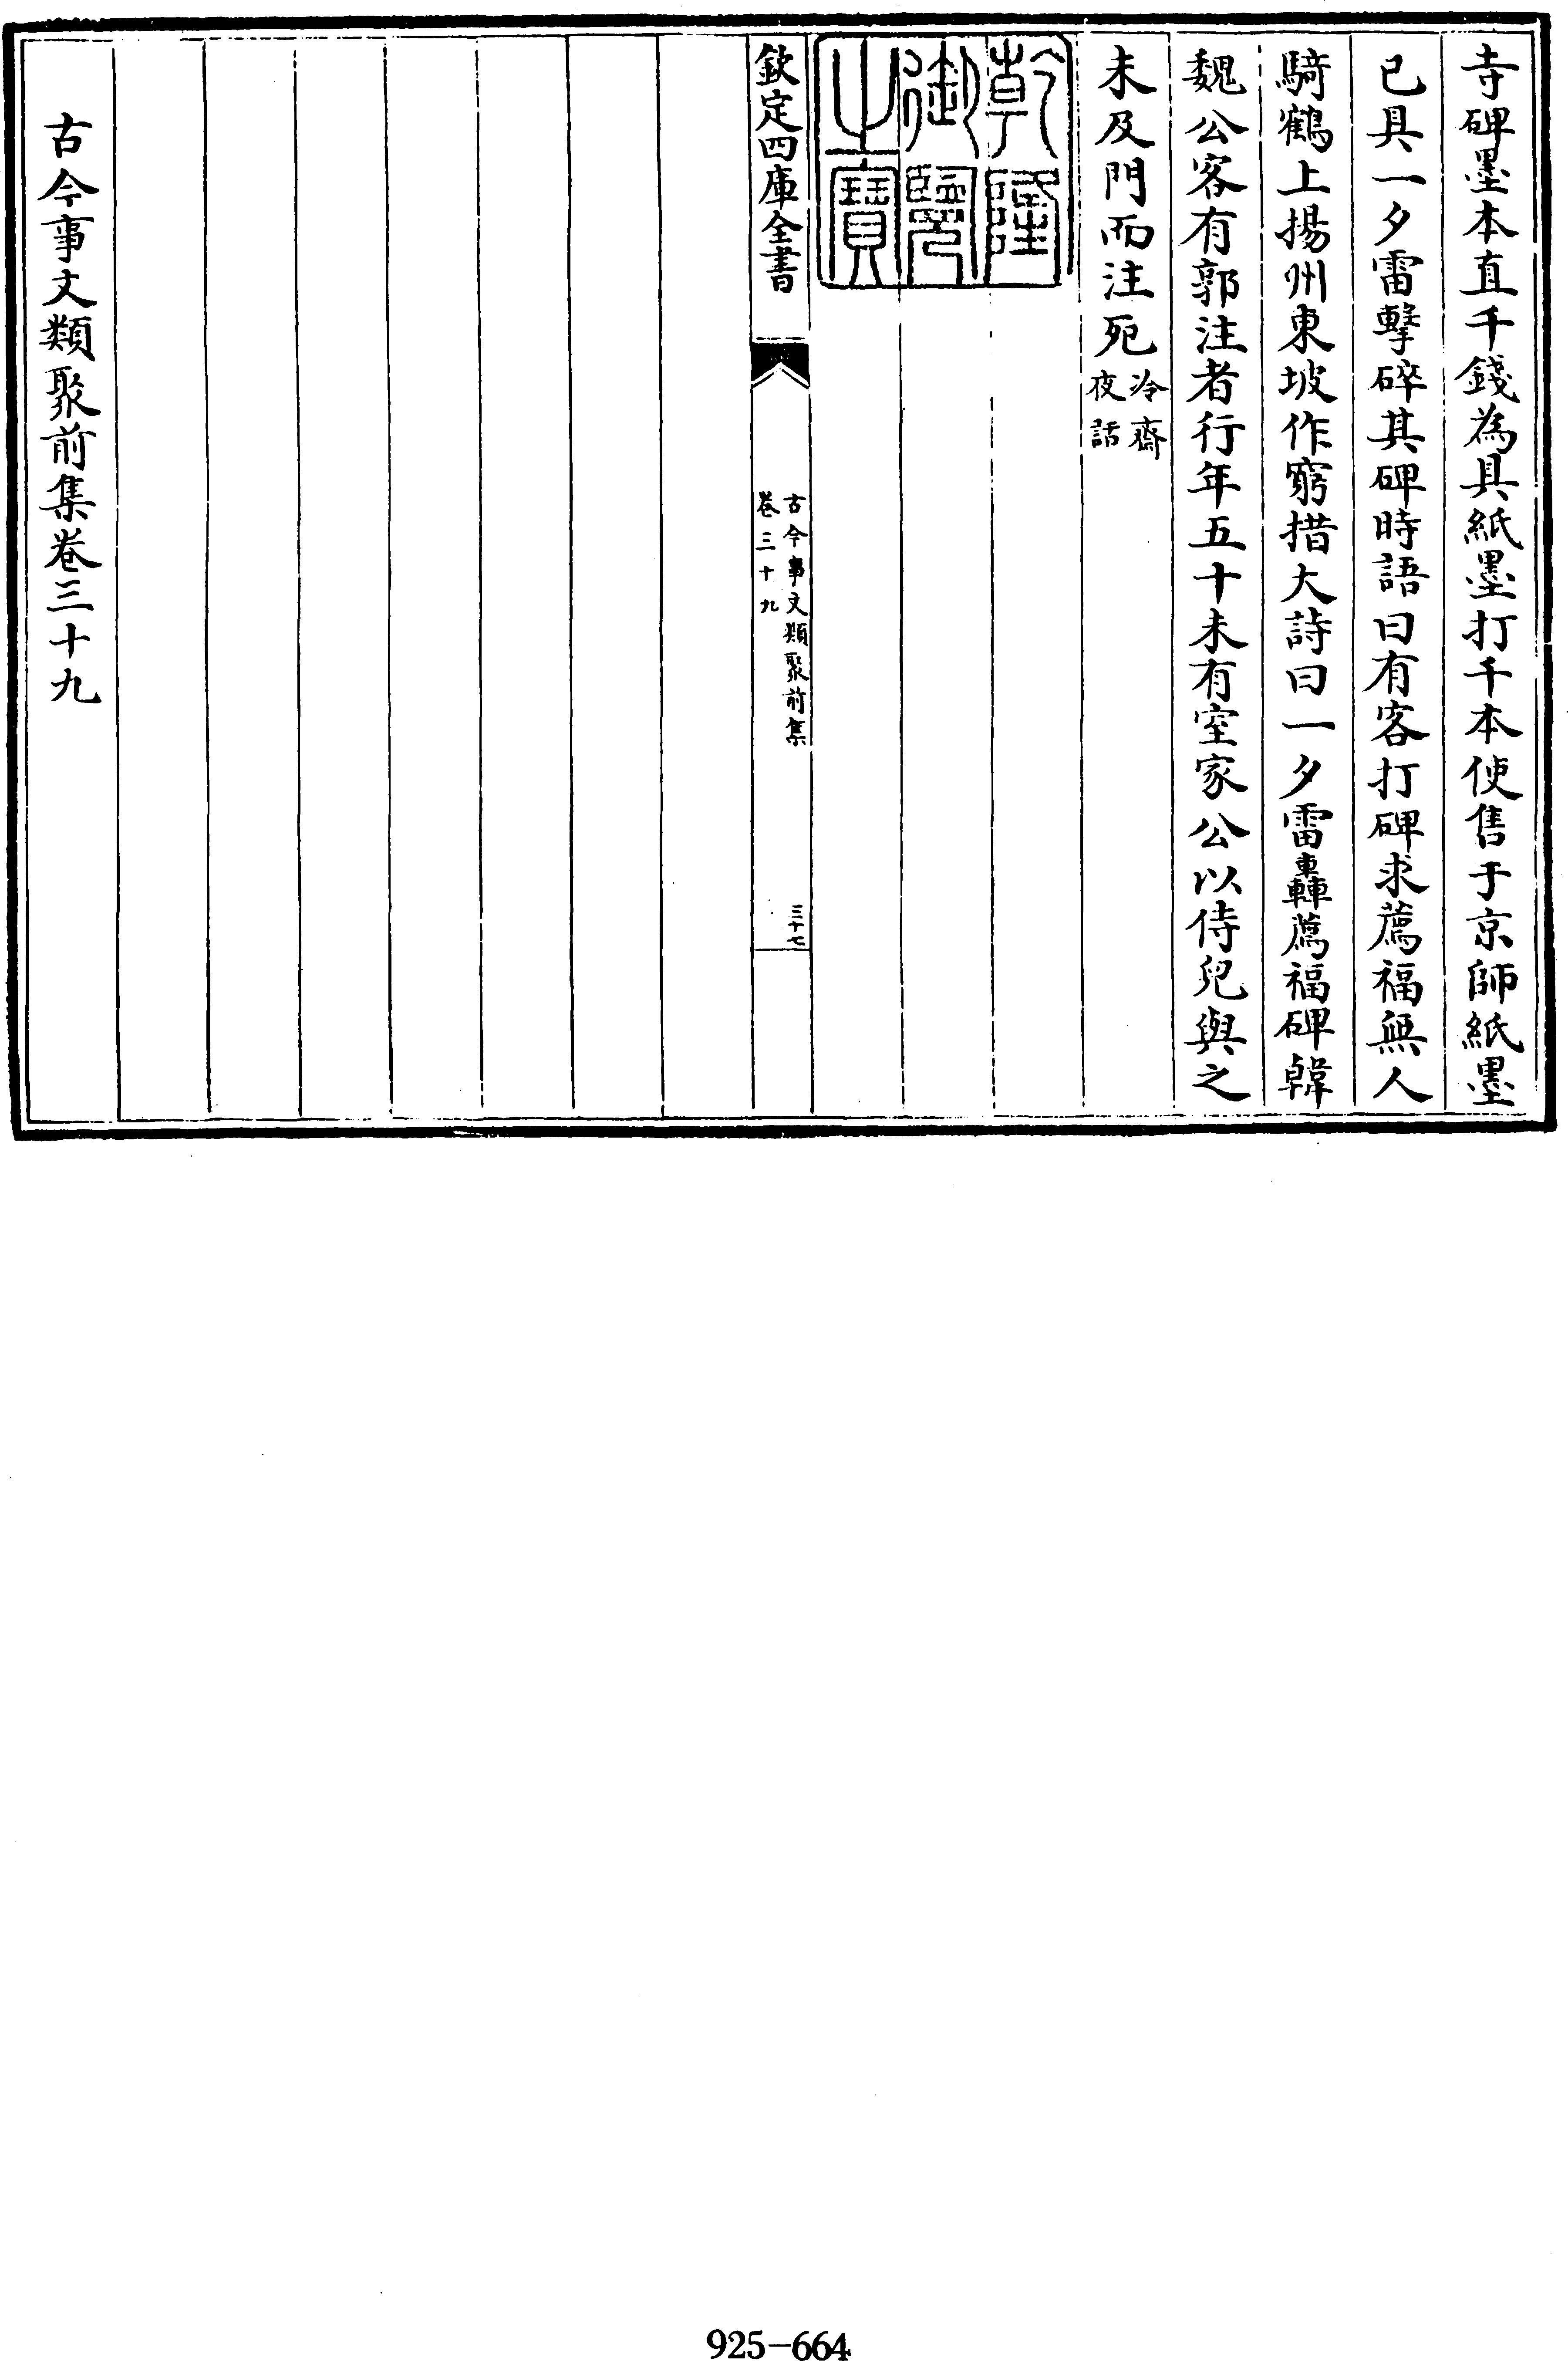 寺碑墨本直千錢為具紙墨打千本使售于京師紙墨
已具一夕雷擊碎其碑時語曰有客打碑求薦福無人
騎鶴上揚州東坡作窮措大詩曰一夕雷轟薦福碑韓
魏公客有郭注者行年五十未有室家公以侍兒與之
未及門而注死冷齋
夜話
乾隆
御覽
之寶
欽定四庫全書
古今事文類聚前集
卷三十九
三十七
古今事文類聚前集卷三十九
925-664